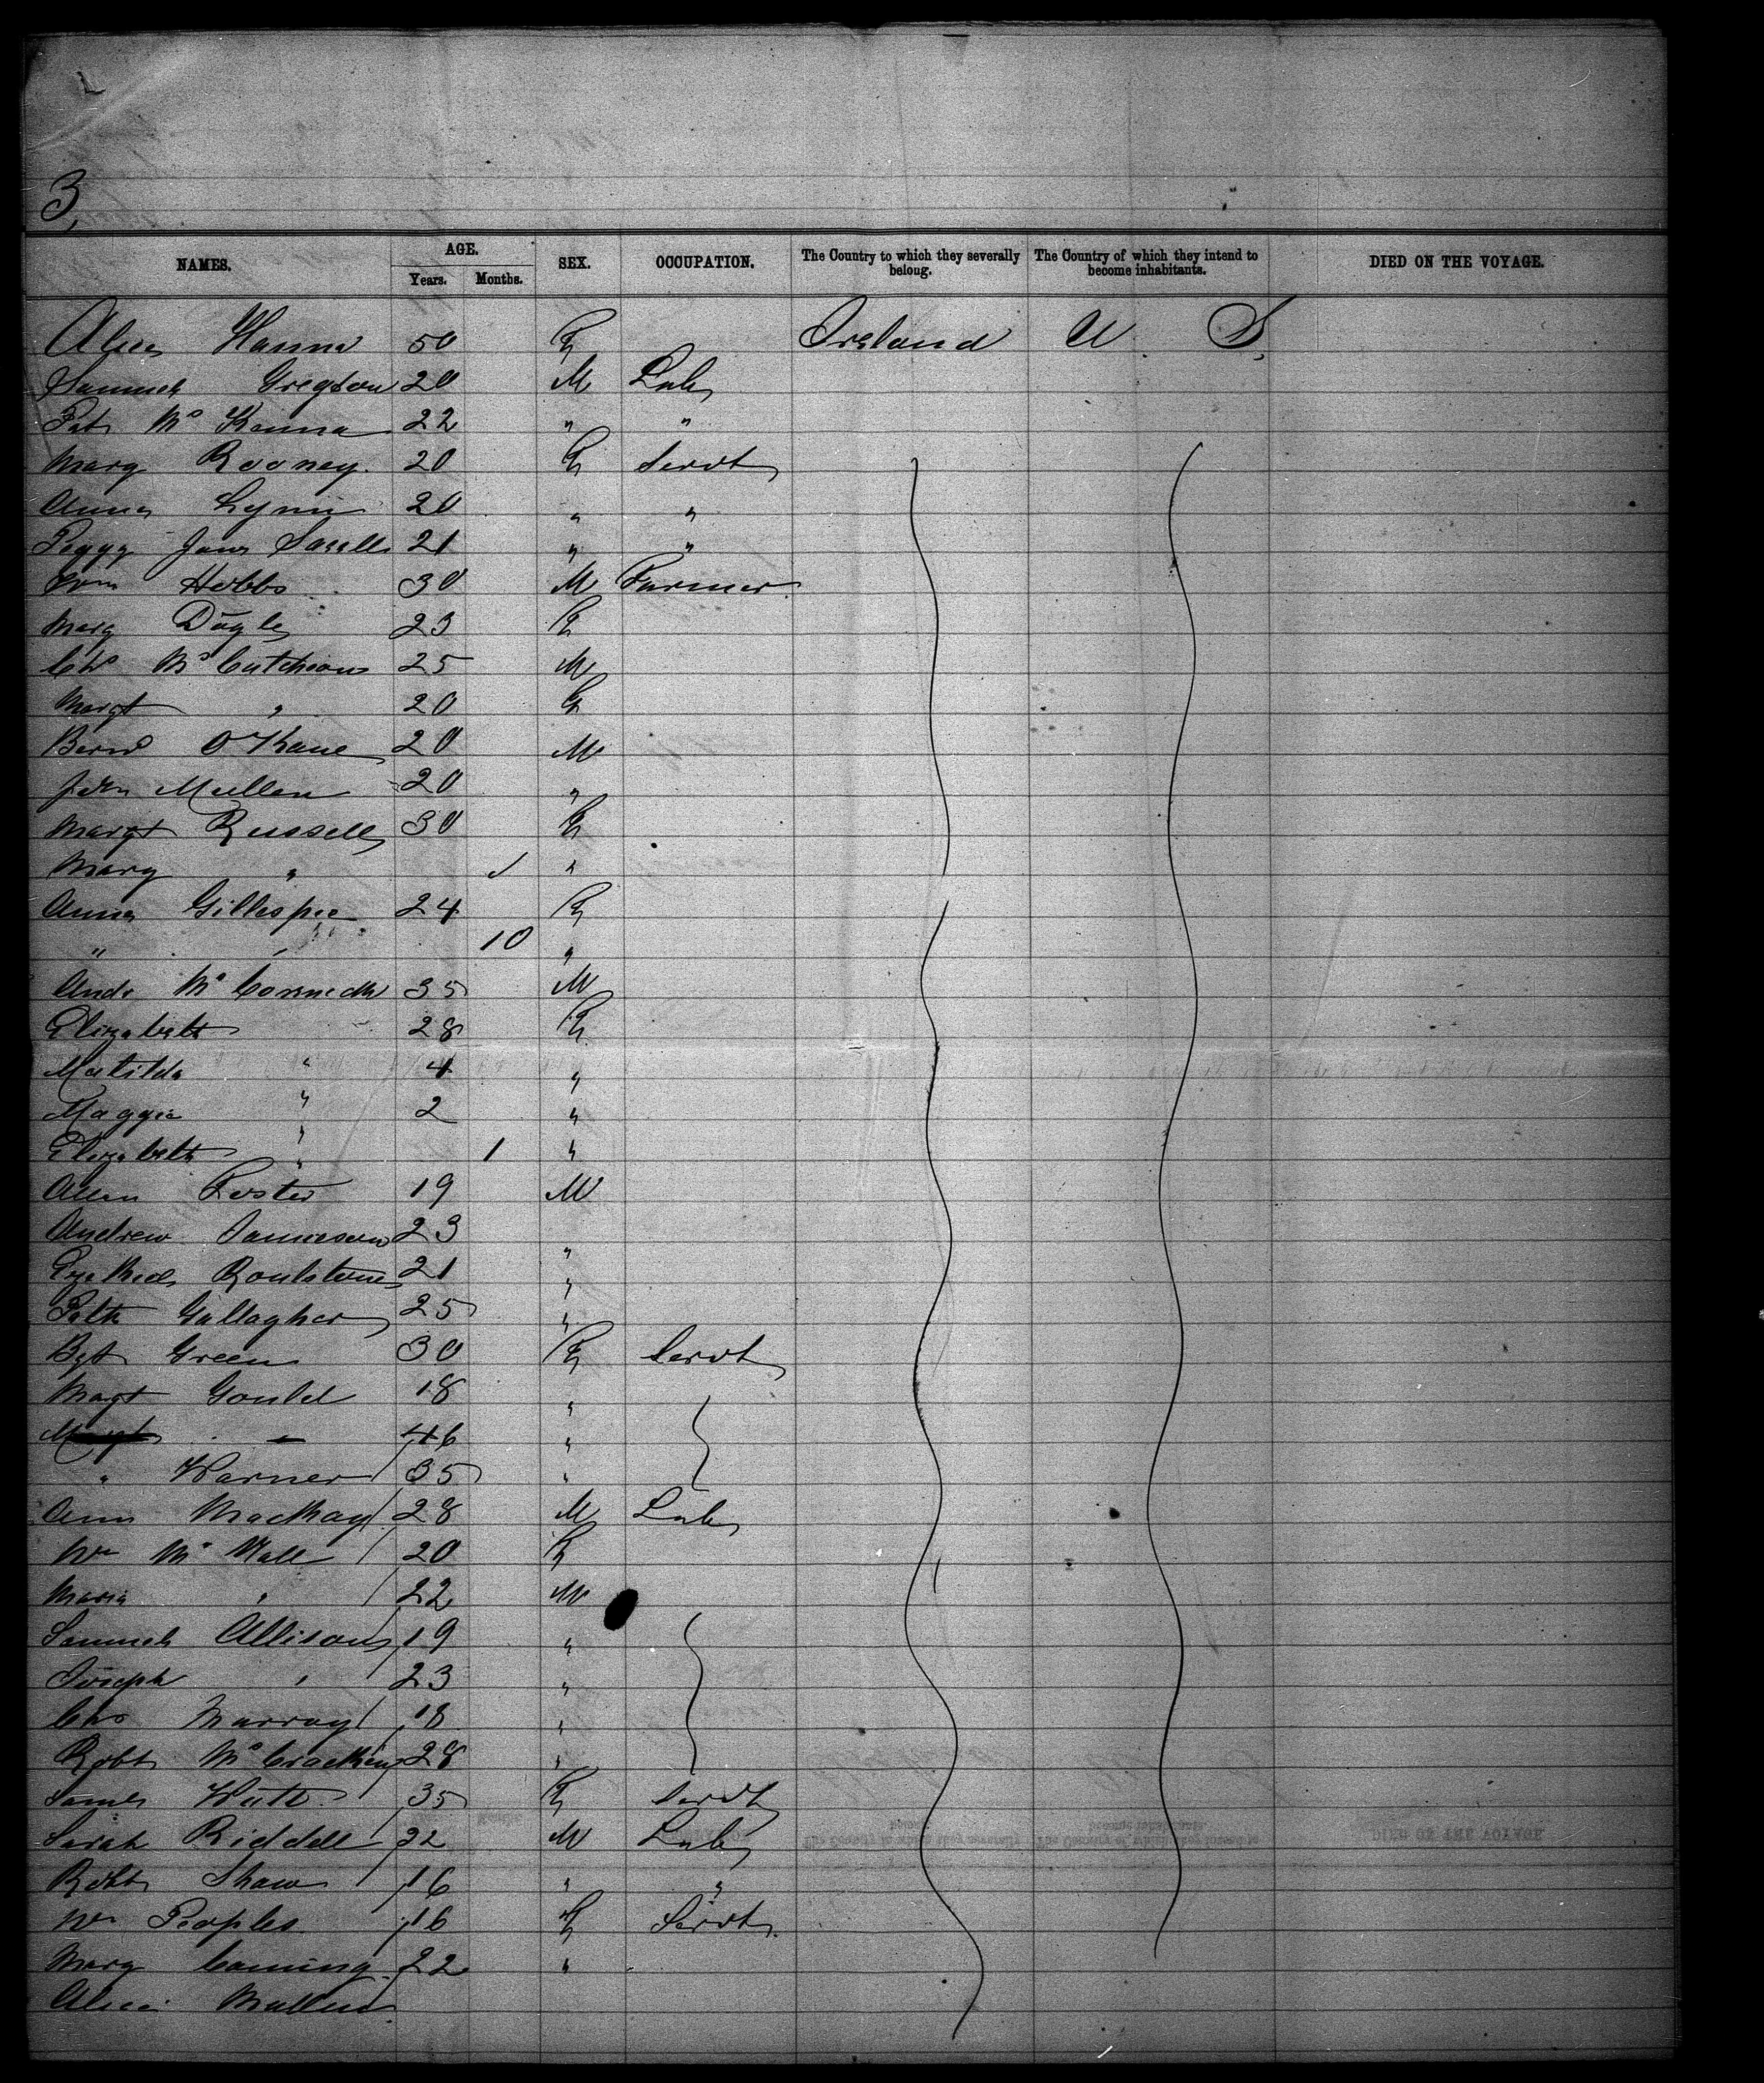 3,
NAMES. AGE. SEX. OCCUPATION. The Country to which they severally belong. The Country of which they intend to become inhabitants. DIED ON THE VOYAGE.
Years. Months.
Alice Hanna 50 F Ireland U. S.
Samuel 20 M Lab
Pat Mc Kenna 22 " "
Mary Rooney. 20 F Servt
Anna Lynn 20 " "
Peggy Jane 21 " "
Wm Hobbs 30 M Farmer
Mary Doyle 23 F
Chs Mc Cutcheon 25 M
Margt " 20 F
Bernd O'Kane 20 M
John Mullen 20 "
Margt Russell 30 F
Mary " "
Anna Gillespie 24 F
" " 10 "
Andr Mc Cormick 35 M
Elizabeth 28 F
Matilda " 4 "
Maggie " 2 "
Elizabeth " 1 "
Allen 19 M
Andrew Jamieson 23 "
Roulstone 21 "
Patk Gallagher 25 "
Bgt Green 30 F Servt
Margt 18 "
46 "
" Warner 35 "
Ann Mackay 28 M Lab
Wm Mc Hall 20 F
Maria " 22 M
Samuel Allison 19 "
Joseph " 23 "
Chs Murray 18 "
Robt Mc Cracken 28 "
James Watt 35 F Servt
Sarah Riddell 22 M Lab
Robt Shaw 16 " "
Wm Peoples 16 F Servt
Mary Caming 22 "
Alice Mullen